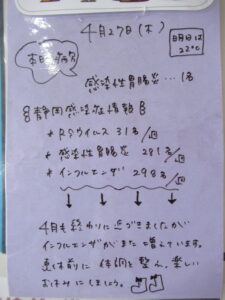 4月27日(木)
明日は
22℃
本日の病欠
感染性胃腸炎…1名
静岡感染症情報
* RSウイルス 31名/週
* 感染性胃腸炎 281名/週
* インフルエンザ 298名/週
↓ ↓ ↓ ↓
4月も終わりに近づきましたが
インフルエンザがまた増えています。
連休前に体調を整え、楽しい
お休みにしましょう。